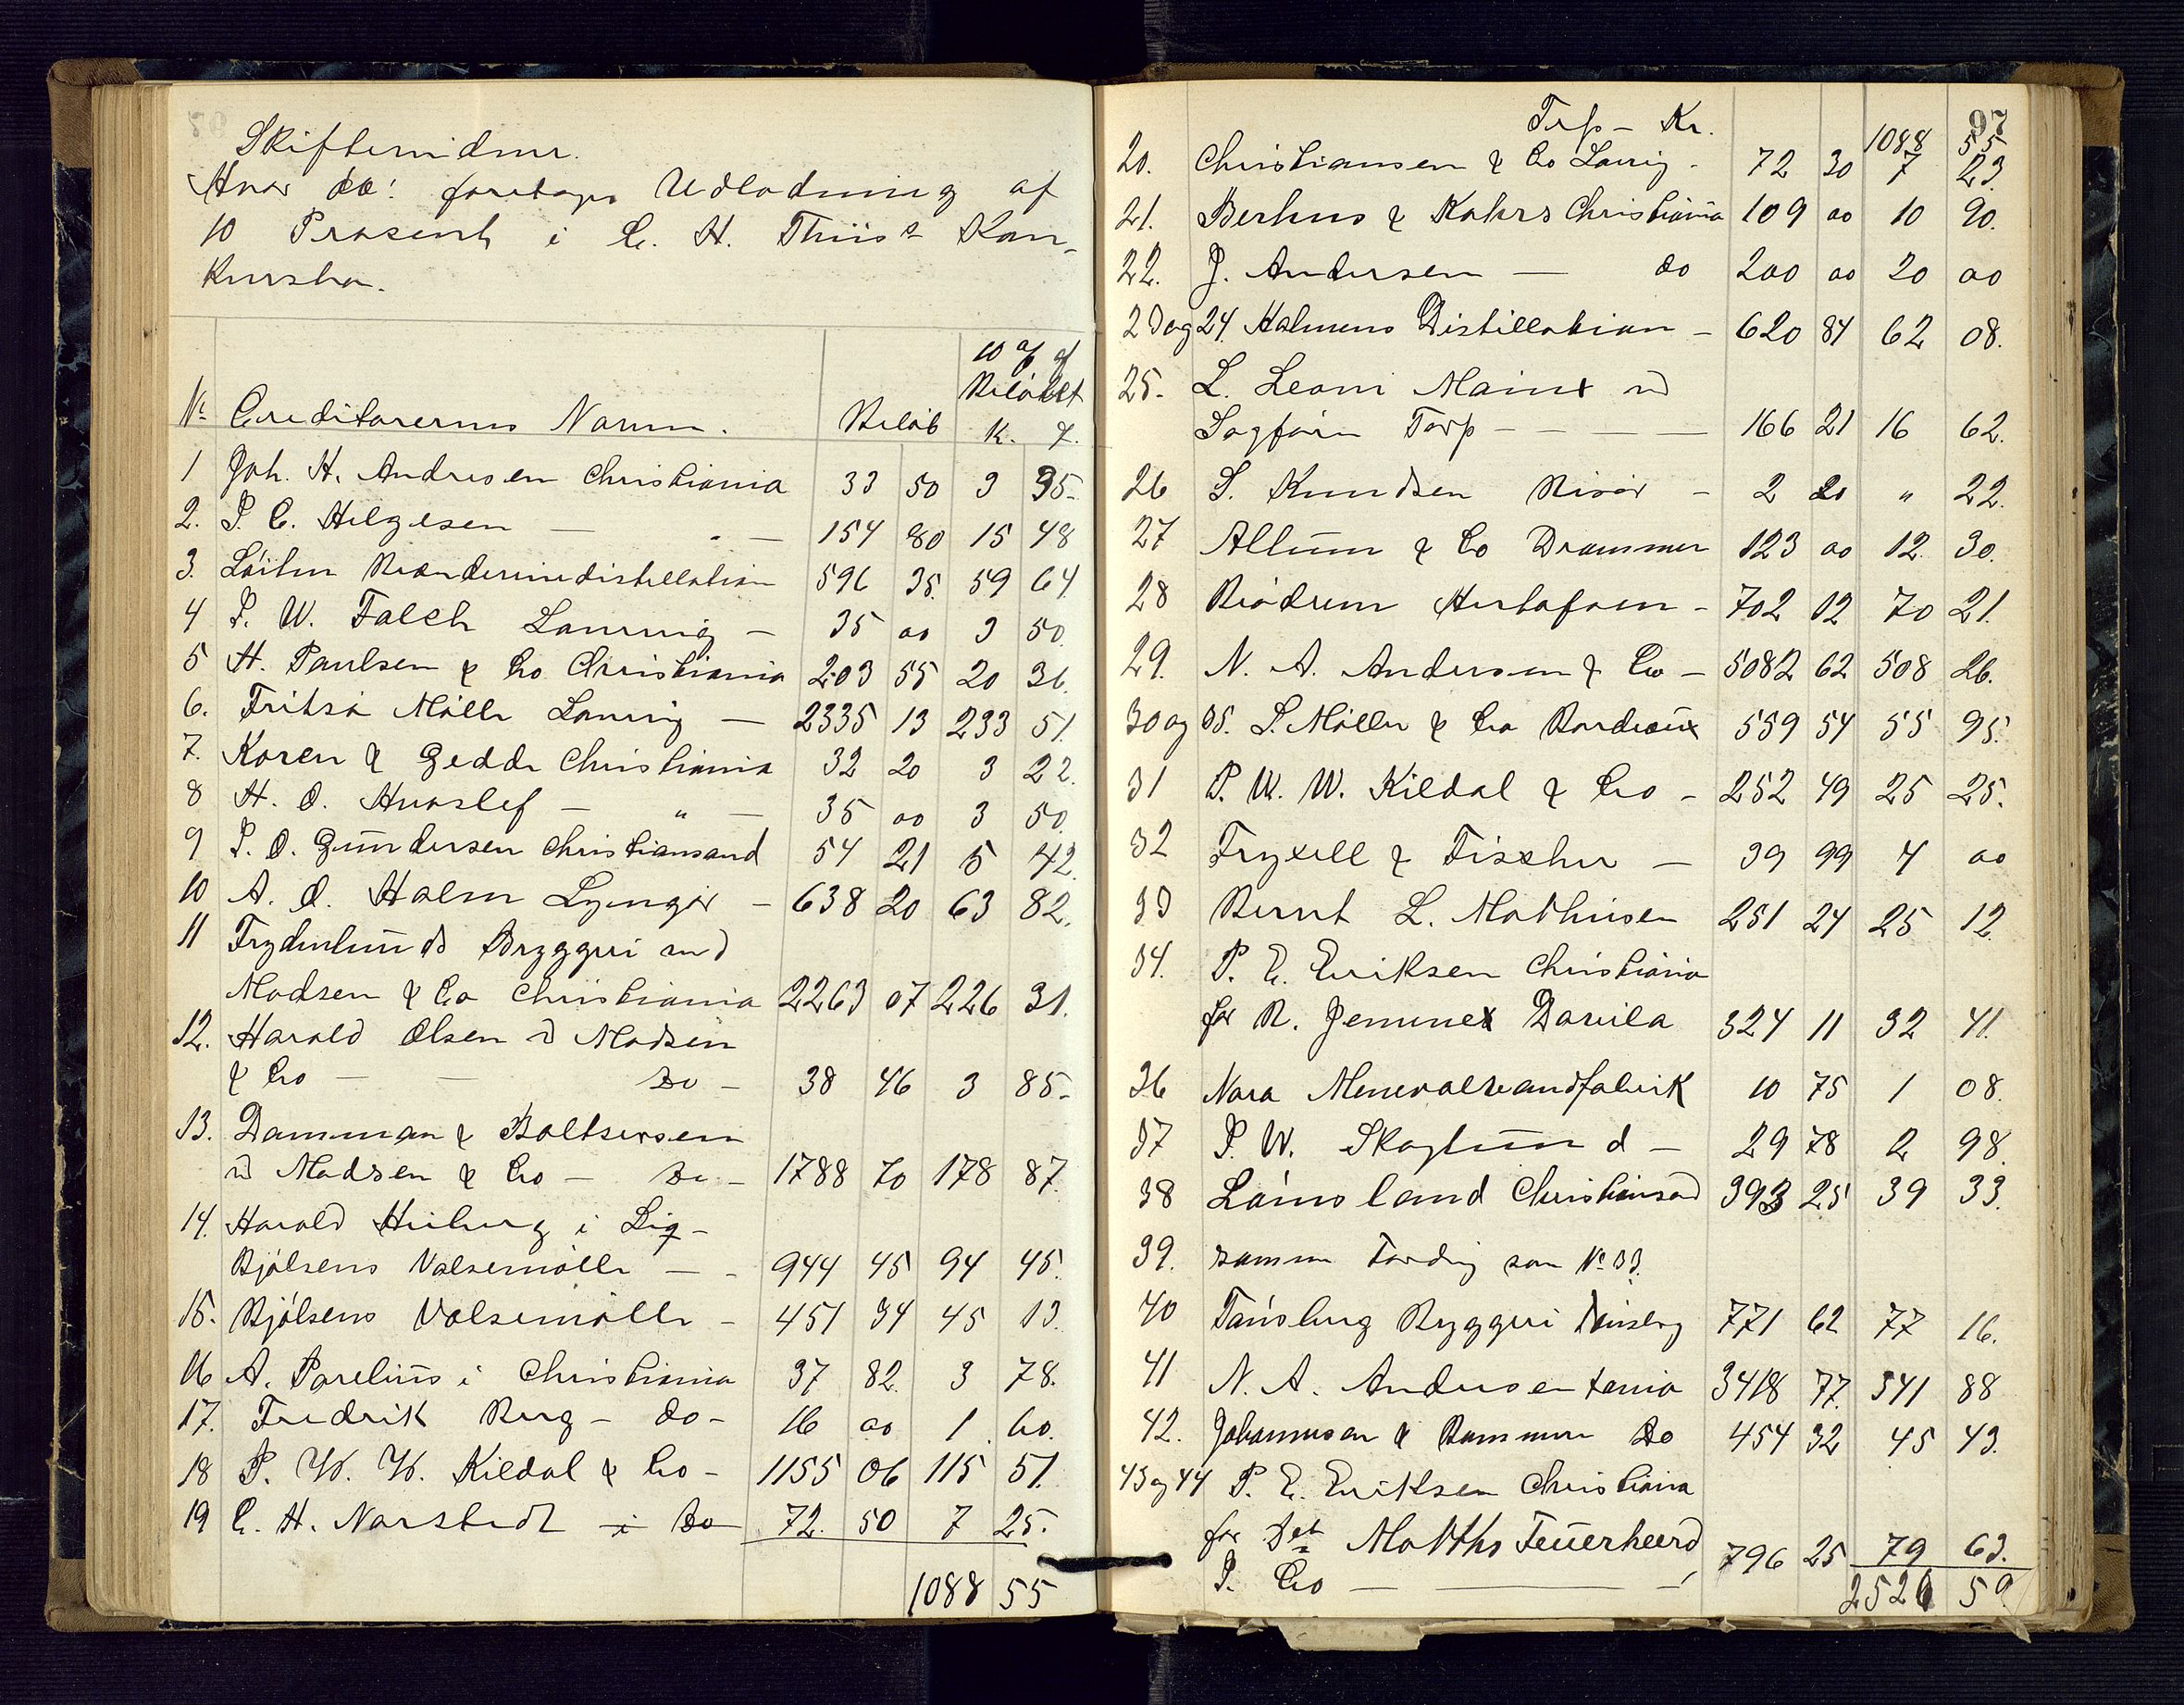 Skifterudmr.
Hvor da! foretages Udlodning af
10 Prosent i C. H. Thiis's Kon-
kursbo.
No Creditorernes Navne. Beløb 10 % af Beløbet
K. ø.
1 Joh. H. Andresen Christiania 33 50 3 35.
2. P. C. Hilgesen — " — 154 80 15 48
3. Løiten Brænderiedistillation 596 35. 59 64
4 P. W. Falch Laurvig — 35 00 3 50.
5 H. Paulsen & Co Christiania 203 55 20 36.
6. Fritzø Mølle Laurvig — 2335 13 233 51.
7. Koren & Gedde Christiania 32 20 3 22.
8 H. O. Hvoslef — " — 35 00 3 50.
9 P. O. Gundersen Christiansand 54 21 5 42.
10 A. O. Holm Lyngør — 638 20 63 82.
11 Frydenlunds Bryggeri ved
Madsen & Co Christiania 2263 07 226 31.
12. Harald Olsen v Madsen
& Co — — do — 38 46 3 85.
13. Damman & Baltsersen
v Madsen & Co — do — 1788 70 178 87.
14. Harald Heiberg i Liq-
Bjølsens Valsemølle — 944 45 94 45.
15. Bjølsens Valsemølle — 451 34 45 13.
16 A. Parelius i Christiania 37 82. 3 78.
17. Fredrik Berg — do — 16 00 1 60.
18 P. W. W. Kildal & Co — 1155 06 115 51.
19 C. H. Norstedt — i do — 72. 50 7 25.
1088 55
97
Trsp — Kr. 1088 55
20. Christiansen & Co Larvig — 72 30 7 23.
21. Berhus & Kahrs Christiania 109 00 10 90.
22. J. Andersen — do 200 00 20 00
23 og 24. Holmens Distillation — 620 84 62 08.
25. L. Leoni Mainx v
Sagfører Torp — — — 166 21 16 62.
26 S. Knudsen Risør — 2 20 " 22.
27 Allum & Co Drammen 123 00 12. 30.
28 Brødrene Hustofoen — 702 12 70 21.
29. N. A. Andersen & Co — 5082 62 508 26.
30 og 35. S. Møller & Co Bordeaux 559 54 55 95.
31 P. W. W. Kildal & Co — 252 49 25 25.
32 Fryxell & Fischer — 39 99 4 00
33 Bernt L. Mathisen 251 24 25 12.
34. P. E. Eriksen Christiania
for R. Jemmex Davila 324 11 32 41.
36 Nora Meneralvandfabrik 10 75 1 08.
37 P. W. Skoglund — 29 78 2 98.
38 Løinsland Christiansand 393 25 39 33.
39. samme Fordring som No 33.
40 Tønsberg Bryggeri Tønsberg 771 62 77 16.
41 N. A. Andersen tania 3418 77. 341 88
42. Johannesen & Rammen do 454 32 45 43.
43 og 44 P. E. Eriksen Christiania
for Det Matths Feuerheerd
P. Co — — 796 25 79 63.
2526 59.